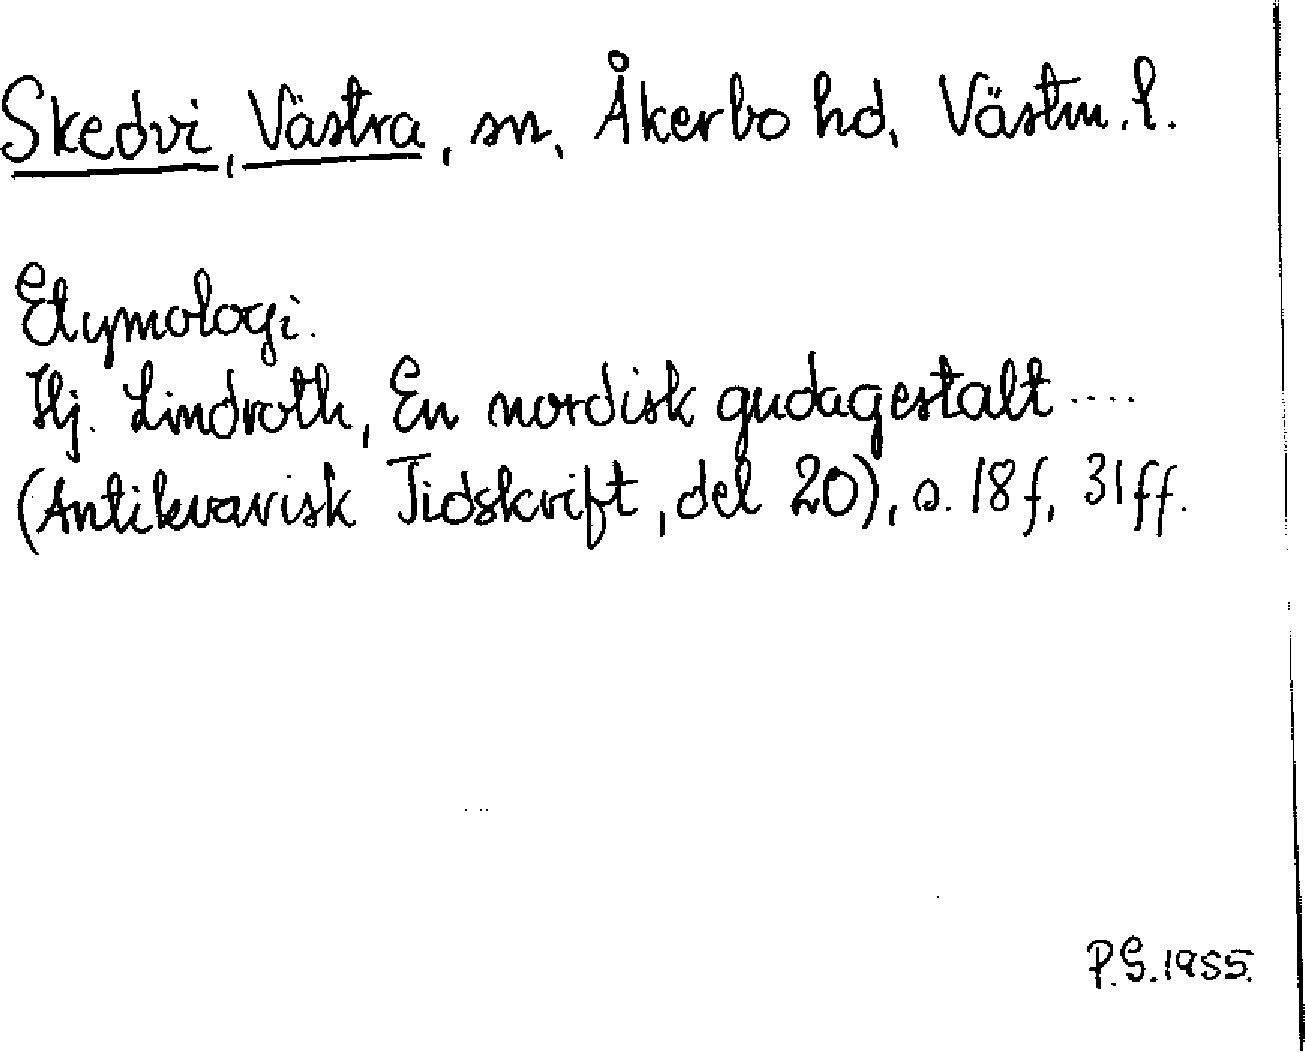 Skedvi, Västra, sn, Åkerbo hd, Västm. l.
Etymologi.
Hj. Lindroth, En nordisk gudagestalt ....
(Antikvarisk Tidskrift, del 20), s. 18 f, 31 ff.
P.G. 1955.